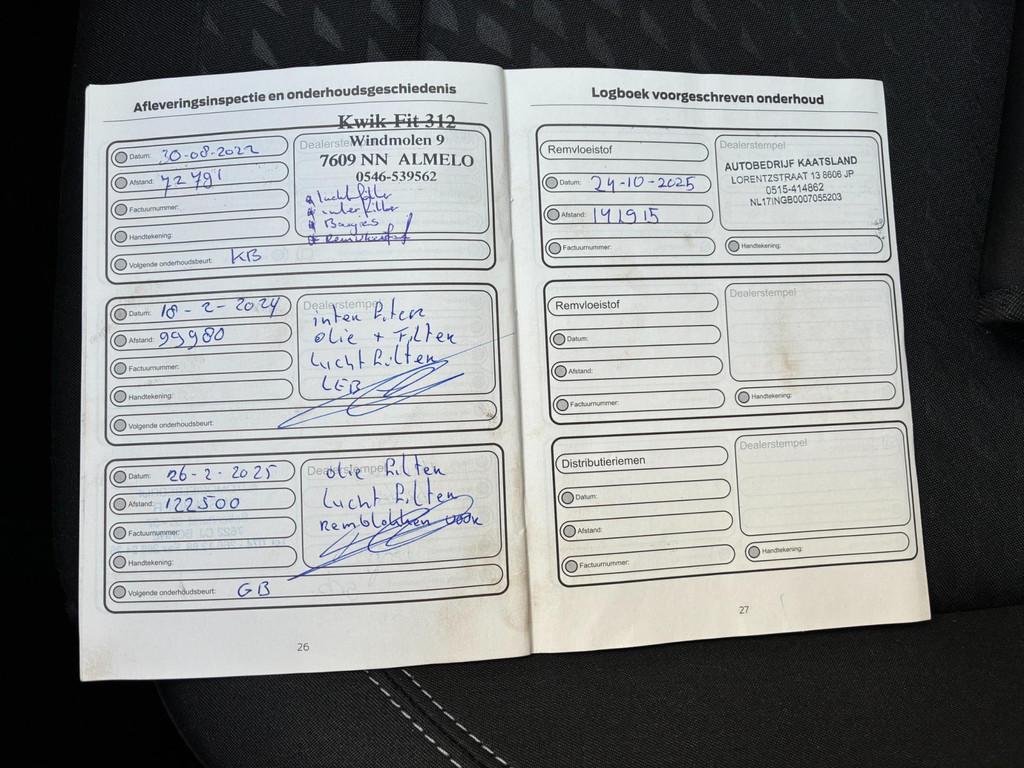 Afleveringsinspectie en onderhoudsgeschiedenis
Datum: 30-08-2022
Afstand: 72 791
Factuurnummer:
Handtekening:
Volgende onderhoudsbeurt: KB
Dealerstempel
Kwik Fit 312
Windmolen 9
7609 NN ALMELO
0546-539562
luchtfilter
Bougies
Remvloeistof
Datum: 18-2-2024
Afstand: 99980
Factuurnummer:
Handtekening:
Volgende onderhoudsbeurt:
Dealerstempel
olie + Filter
Lucht filter
Datum: 26-2-2025
Afstand: 122500
Factuurnummer:
Handtekening:
Volgende onderhoudsbeurt: GB
Dealerstempel
olie filter
Lucht filter
Remblokken voor
26
Logboek voorgeschreven onderhoud
Remvloeistof
Datum: 24-10-2025
Afstand: 141915
Factuurnummer:
Dealerstempel
AUTOBEDRIJF KAATSLAND
LORENTZSTRAAT 13 8606 JP
0515-414862
NL17INGB0007055203
Handtekening:
Remvloeistof
Datum:
Afstand:
Factuurnummer:
Dealerstempel
Handtekening:
Distributieriemen
Datum:
Afstand:
Factuurnummer:
Dealerstempel
Handtekening:
27